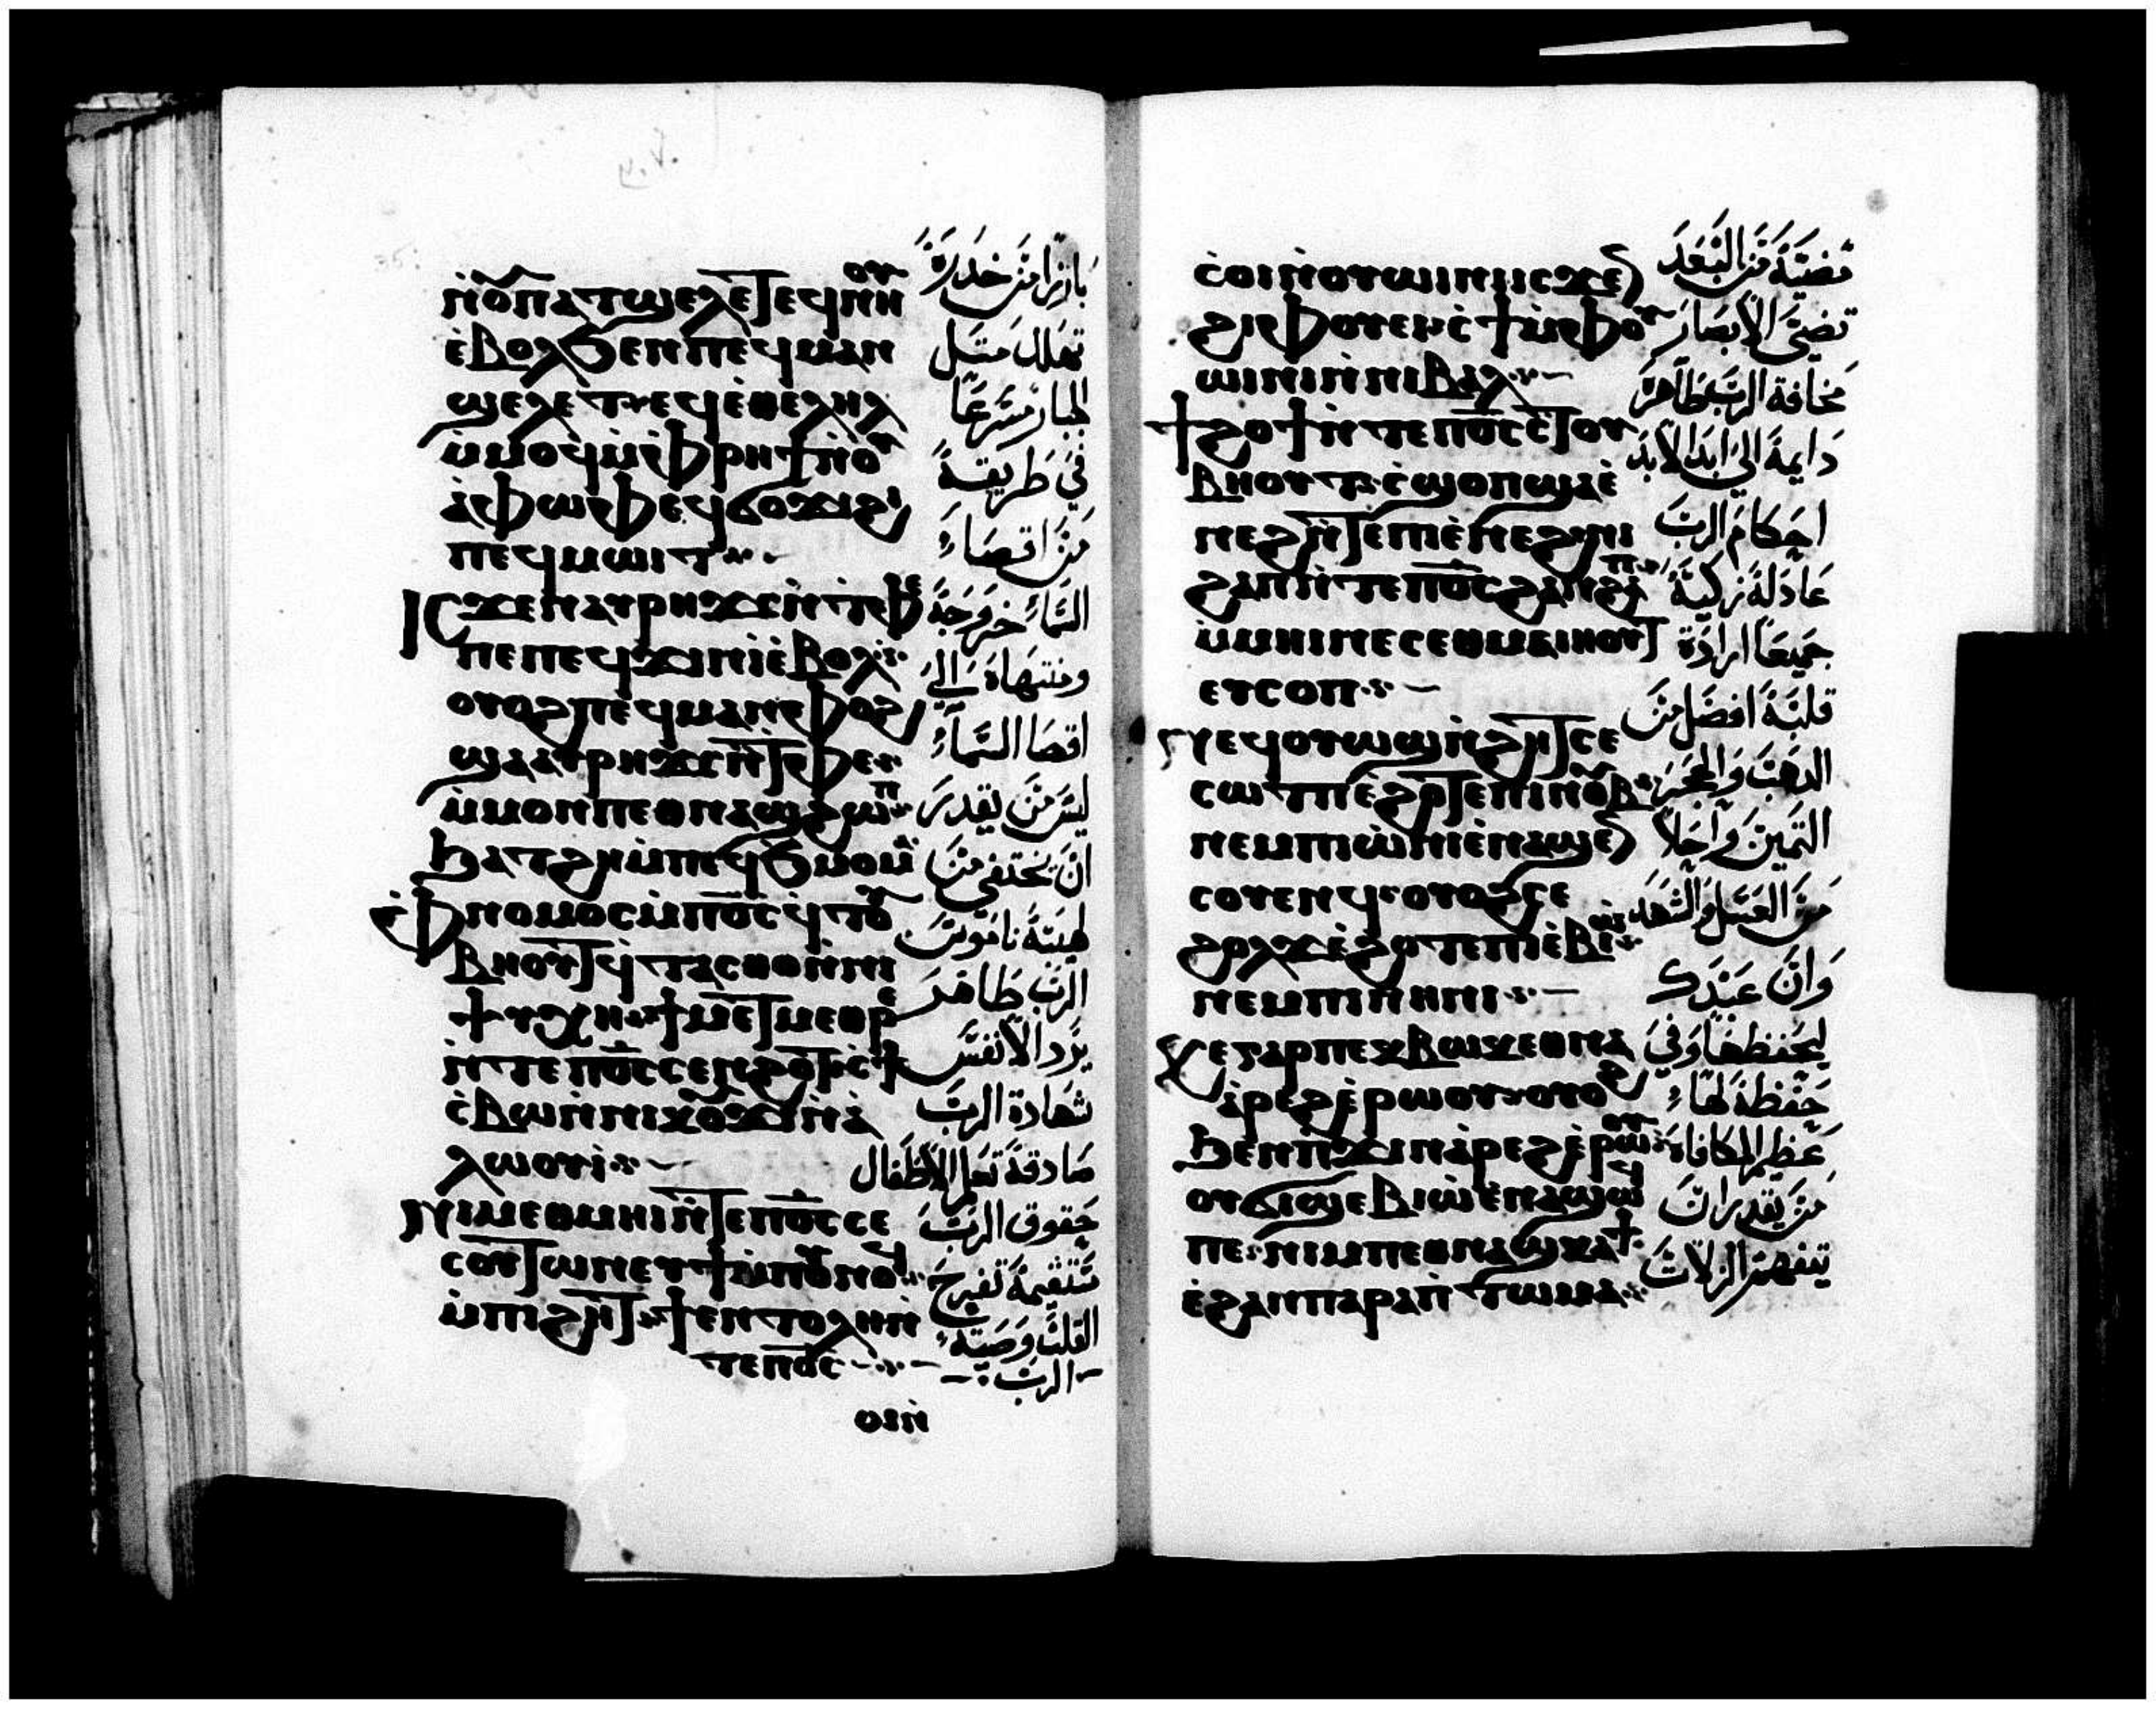 ⲛ̀ⲟⲩⲡⲁⲧϣⲉⲗⲉⲧ ⲉϥⲛⲏⲟⲩ
ⲉ̀ⲃⲟⲗϧⲉⲛⲡⲉϥⲙⲁⲛ
ϣⲉⲗⲉⲧ ⲉϥⲉ̀ⲑⲉⲗⲏⲗ
ⲙ̀ⲙⲟϥⲙ̀ⲫⲣⲏϯⲛⲟⲩ
ⲁ̀ⲫⲱⲫ ⲉϥϭⲟϫⲓϩⲓ
ⲡⲉϥⲙⲱⲓⲧ
ⲓⲥϫⲉⲛⲁⲩⲣⲏϫⲥⲛ̀ⲧⲉⲧⲫⲉ
ⲡⲉⲡⲉϥϫⲓⲛⲓ̀ⲉ̀ⲃⲟⲗ
ⲟⲩⲟϩⲡⲉϥⲙⲁⲛⲫⲟϩ
ϣⲁⲁⲩⲣⲏϫⲥⲛ̀ⲧⲉⲧⲫⲉ
ⲙ̀ⲙⲟⲛⲡⲉⲑⲛⲁϣϩⲱⲡ
ϧⲁⲧϩⲏⲙ̀ⲡⲉϥϧⲙⲟⲙ
ⲫⲛⲟⲙⲟⲥⲙ̀ⲡⲟ̅ⲥ̅ϥⲧⲟⲩ
ⲃⲏⲟⲩⲧ ϥ̀ⲧⲁⲥⲑⲟⲛ̀ⲛⲓ
ⲯⲩⲭⲏ ϯⲙⲉⲧⲙⲉⲑⲣⲉ
ⲛ̀ⲧⲉⲡⲟ̅ⲥ̅ⲥⲉⲛϩⲟⲧ ⲥ̀ϯ
ⲥⲃⲱⲛ̀ⲛⲓⲕⲟⲩϫⲓⲛ̀ⲁ̀
ⲗⲱⲟⲩⲓ̀
ⲛⲓⲙⲉⲑⲙⲏⲓⲛ̀ⲧⲉⲡⲟ̅ⲥ̅ⲥⲉ
ⲥⲟⲩⲧⲱⲛⲉⲩϯⲙ̀ⲡⲟⲩⲛⲟϥ
ⲙ̀ⲡⲓϩⲏⲧ ϯⲉⲛⲧⲟⲗⲏⲛ̀
ⲧⲉⲡⲟ̅ⲥ̅
بارزا من خدره
تهلل مثل
الجبار مسرعا
في طريقه
من اقصاء
السماء خروجه
ومنتهاه الى
اقصا السماء
ليس من يقدر
ان يختفي من
ناموس
الرب طاهر
يرد الانفس
شهادة الرب
صادقة تعلم الاطفال
حقوق الرب
مستقيمة تفرح
القلب وصية
الرب
ⲥ̀ⲟⲓⲛ̀ⲟⲩⲱⲓⲛⲓⲓⲥϫⲉⲛ
ϩⲓⲫⲟⲩⲉⲓ ⲥ̀ϯⲙ̀ⲫⲟⲩ
ⲱⲓⲛⲓⲛ̀ⲛⲓⲃⲁⲗ
ϯϩⲟϯⲛ̀ⲧⲉⲡⲟ̅ⲥ̅ⲥ̀ⲧⲟⲩ
ⲃⲏⲟⲩⲧ ⲥ̀ϣⲟⲡϣⲁⲉ̀
ⲛⲉϩⲛ̀ⲧⲉⲡⲓⲉ̀ⲛⲉϩ ⲛⲓ
ϩⲁⲡⲛ̀ⲧⲉⲡⲟ̅ⲥ̅ϩⲁⲛϩⲁⲡ
ⲙ̀ⲙⲏⲓⲛⲉⲥⲉⲑⲙⲁⲓⲏⲟⲩⲧ
ⲉⲩⲥⲟⲡ
ⲛⲉϥⲟⲩⲱϣⲛ̀ϩⲏⲧ ⲥⲉ
ⲥⲱⲧⲡⲉ̀ϩⲟⲧⲉⲡⲓⲛⲟⲩⲃ
ⲛⲉⲙⲡⲓⲱ̀ⲛⲓⲉ̀ⲛⲁϣⲉⲛ
ⲥⲟⲩⲉⲛϥ ⲟⲩⲟϩⲥⲉ
ϩⲟⲗϫⲉ̀ϩⲟⲧⲉⲡⲓⲉ̀ⲃⲓⲱ
ⲛⲉⲙⲡⲓⲛⲏⲛⲓ
ⲕⲉⲅⲁⲣⲡⲉⲕⲃⲱⲕⲉⲑⲛⲁ
ⲁ̀ⲣⲉϩⲉ̀ⲣⲱⲟⲩ ⲟⲩⲟϩ
ϧⲉⲛⲡ̀ϫⲓⲛⲁ̀ⲣⲉϩⲉ̀ⲣⲱⲟⲩ
ⲟⲩϭⲓϣⲉⲃⲓⲱ̀ⲉ̀ⲛⲁϣⲱϥ
ⲡⲉ ⲛⲓⲙⲡⲉⲑⲛⲁϣⲕⲁϯ
ⲉ̀ϩⲁⲛⲡⲁⲣⲁⲡ̀ⲧⲱⲙⲁ
مضية من البعد
تضئ الابصار
مخافة الرب طاهرة
دايمة الى ابد الابد
احكام الرب
عادلة زكية
جميعا ارادة
قلبه افضل من
الذهب والحجر
الثمين واحلا
من العسل والشهد
وان عبدك
ليحفظها وفي
حفظه لها
عظيم المكافاه
من يقدر ان
يتفهم الزلات